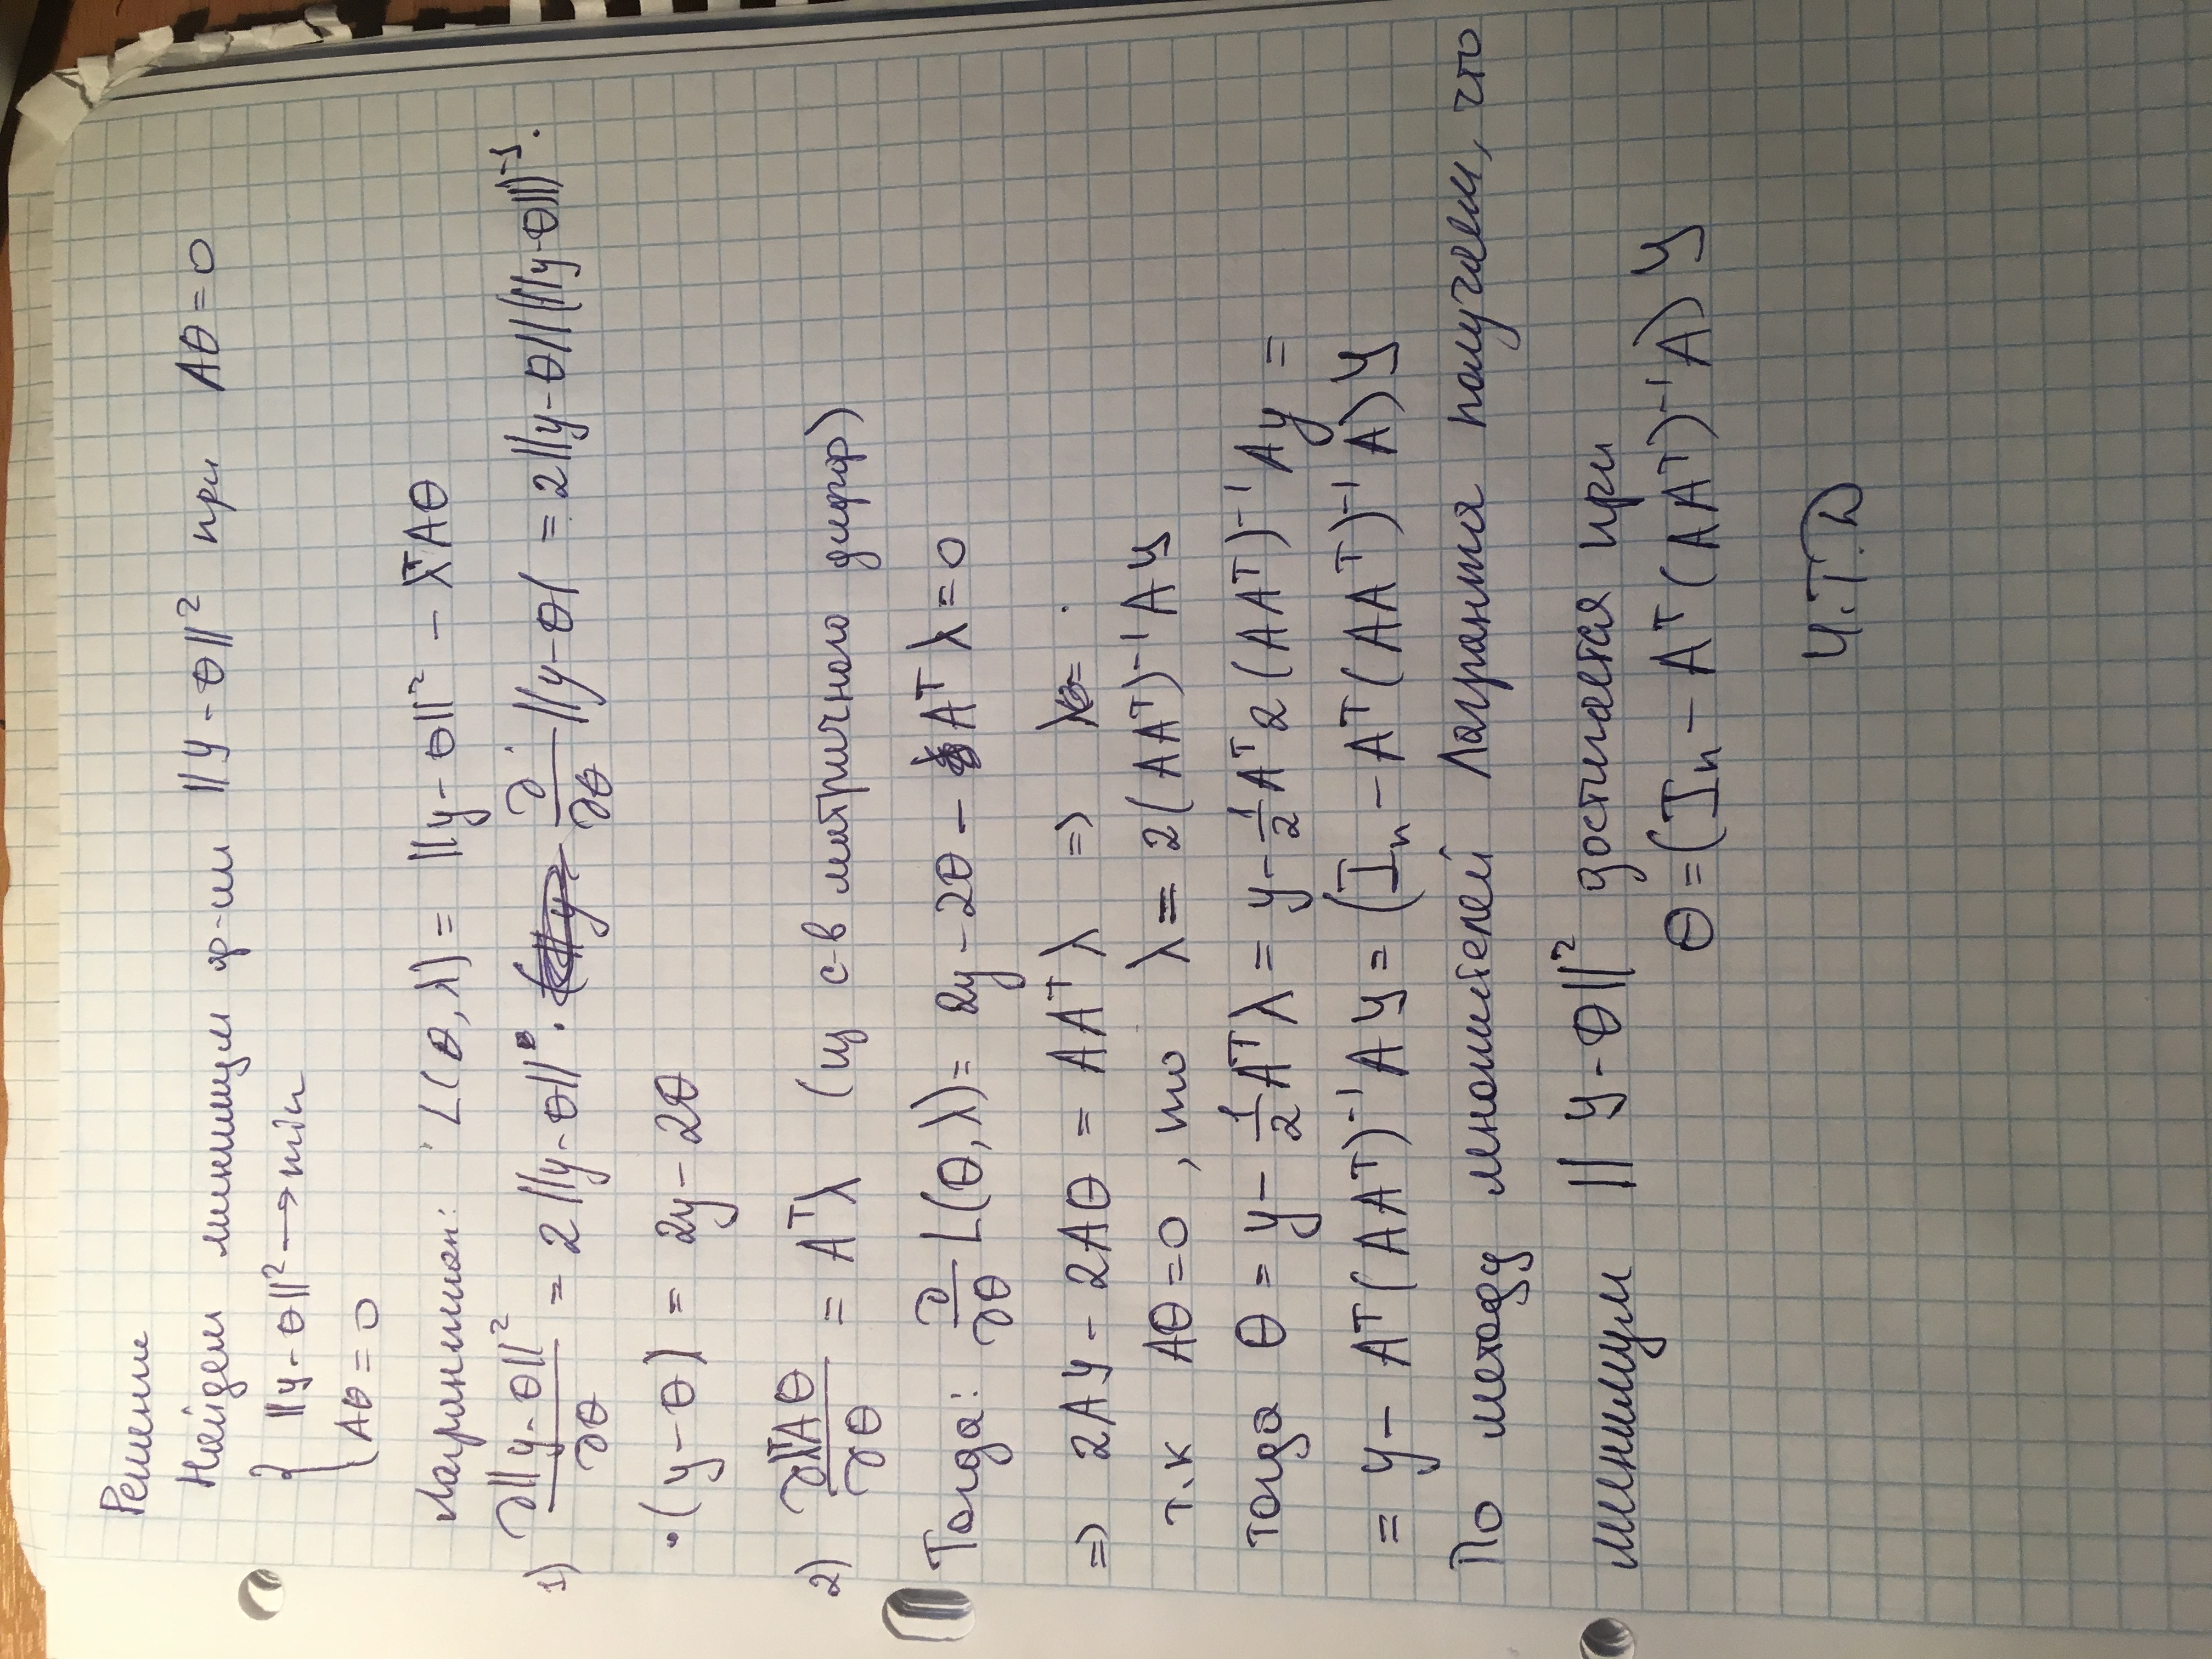 Решение
Найдем минимум ф-ии ||Y - θ||² при Aθ = 0
{ ||y - θ||² → min
Aθ = 0
Лагранжиан: L(θ, λ) = ||y - θ||² - λᵀAθ
1) ∂||y - θ||² / ∂θ = 2||y - θ|| · ∂/∂θ ||y - θ| = 2||y - θ||(||y - θ||)⁻¹ ·
· (y - θ) = 2y - 2θ
2) ∂λᵀAθ / ∂θ = Aᵀλ (из с-в матричного дифф)
Тогда: ∂/∂θ L(θ, λ) = 2y - 2θ - Aᵀλ = 0
⇒ 2AY - 2Aθ = AAᵀλ ⇒ λ =
т.к Aθ = 0, то λ = 2(AAᵀ)⁻¹AY
тогда θ = y - 1/2 Aᵀλ = y - 1/2 Aᵀ2(AAᵀ)⁻¹Ay =
= y - Aᵀ(AAᵀ)⁻¹AY = (Iₙ - Aᵀ(AAᵀ)⁻¹A)Y
По методу множителей Лагранжа получаем, что
минимум ||Y - θ||² достигается при
θ = (Iₙ - Aᵀ(AAᵀ)⁻¹A)Y
Ч.Т.Д